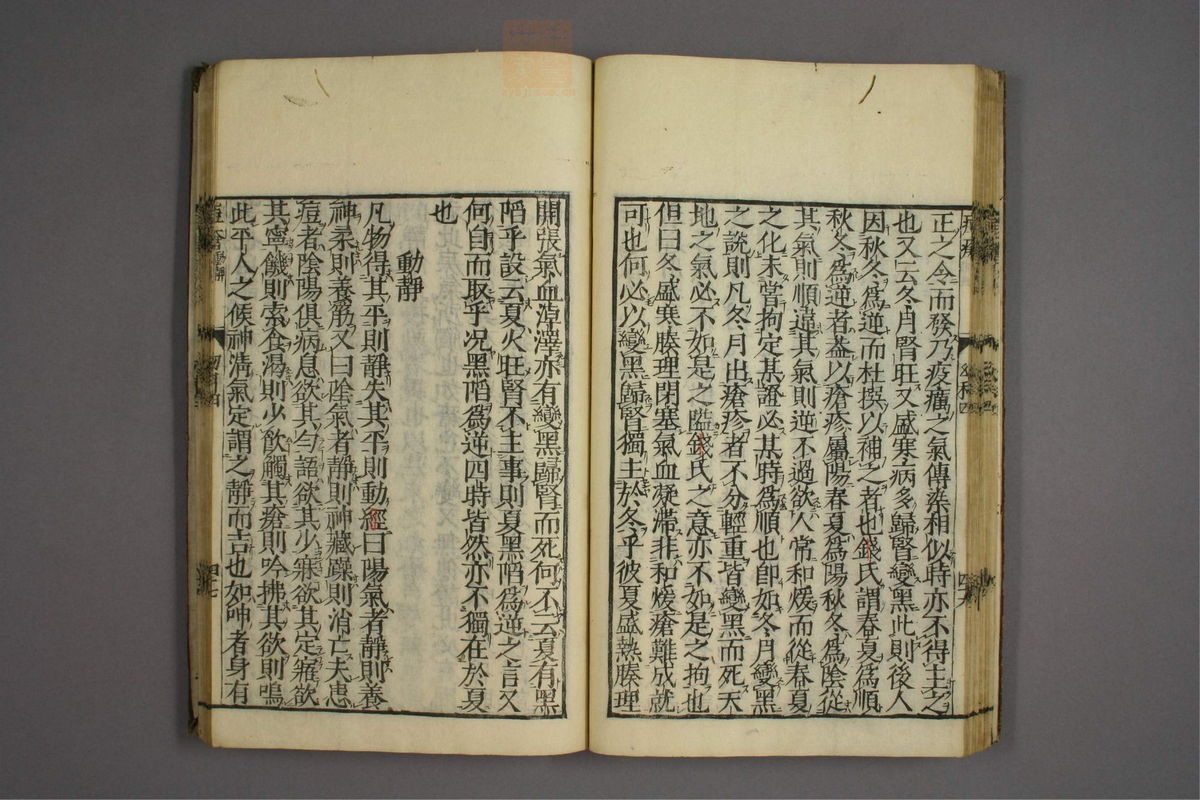 正之令而發乃疫癘之氣傳染相似時亦不得主之
也又云冬月腎旺又盛寒病多歸腎變黑此則後人
因秋冬爲逆而杜撰以補之者也錢氏謂春夏爲順
秋冬爲逆者葢以瘡疹屬陽春夏爲陽秋冬爲陰從
其氣則順違其氣則逆不過欲人常和煖而從春夏
之化未嘗拘定某證必某時爲順也卽如冬月變黑
之說則凡冬月出瘡疹者不分輕重皆變黑而死天
地之氣必不如是之隘錢氏之意亦不如是之拘也
但曰冬盛寒腠理閉塞氣血凝滞非和煖瘡難成就
可也何必以變黑歸腎獨主於冬乎彼夏盛熱腠理
開張氣血淖澤亦有變黑歸腎而死何不云夏有黑
陷乎設云夏火旺腎不主事則夏黑陷爲逆之言又
何自而取乎況黑陷爲逆四時皆然亦不獨在於夏
也
動靜
凡物得其平則靜失其平則動經曰陽氣者靜則養
神柔則養筋又曰陰氣者靜則神藏躁則消亡夫患
痘者陰陽俱病息欲其勻語欲其少寐欲其定寤欲
其寧饑則索食渴則少飲觸其瘡則吟拂其欲則嗚
此平人之候神清氣定謂之靜而吉也如呻者身有